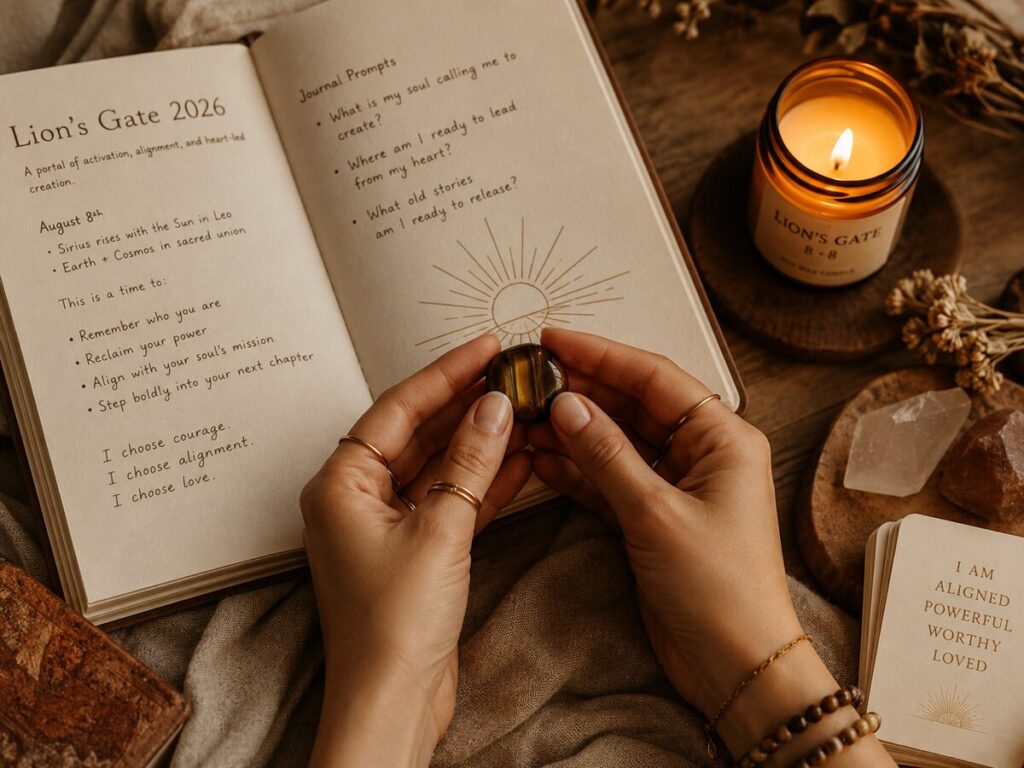 Lion's Gate 2026
A portal of activation, alignment, and heart-led
creation.
August 8th
• Sirius rises with the Sun in Leo
• Earth + Cosmos in sacred union
This is a time to:
• Remember who you are
• Reclaim your power
• Align with your soul's mission
• Step boldly into your next chapter
I choose courage.
I choose alignment.
I choose love.
Journal Prompts
• What is my soul calling me to
create?
• Where am I ready to lead
from my heart?
• What old stories
am I ready to release?
LION'S GATE
8 - 8
SOY WAX CANDLE
I AM
ALIGNED
POWERFUL
WORTHY
LOVED